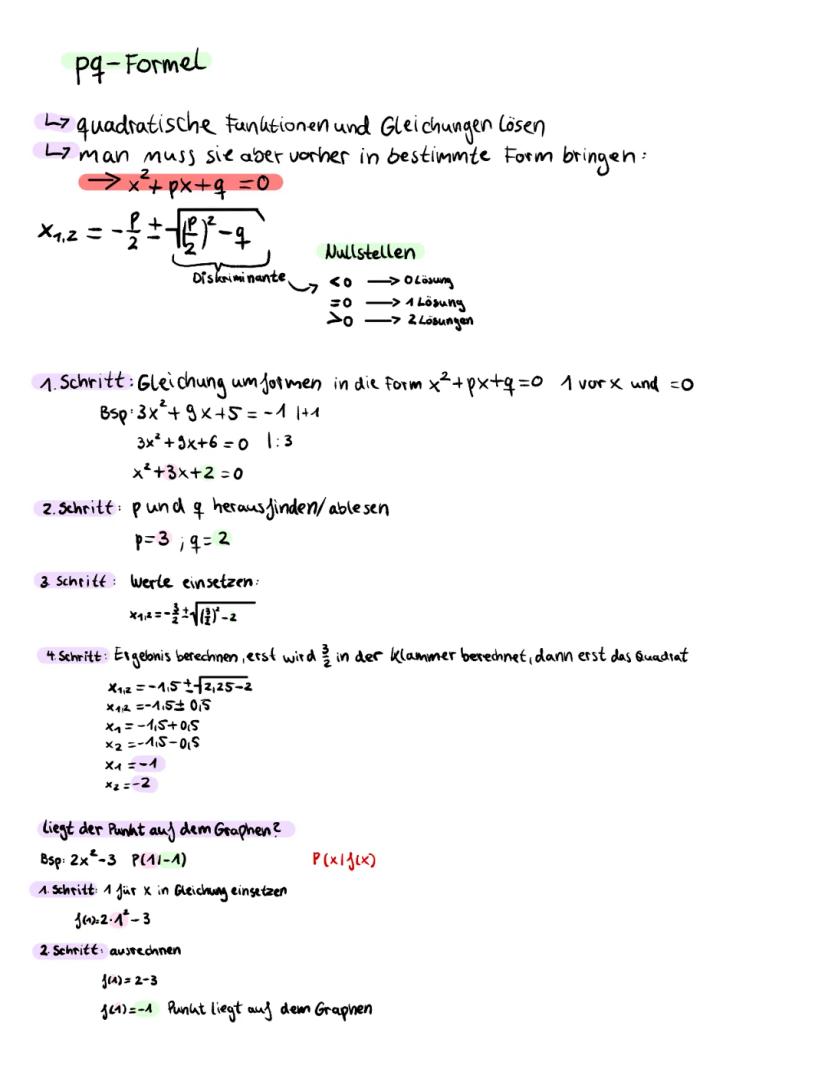 pq-Formel
↳ quadratische Funktionen und Gleichungen lösen
↳ man muss sie aber vorher in bestimmte Form bringen:
→ x²+px+q =0
x₁,₂ = -p/2 ± √((p/2)²-q)
Nullstellen
Diskriminante
<0 → 0 Lösung
=0 → 1 Lösung
>0 → 2 Lösungen
1. Schritt: Gleichung umformen in die Form x²+px+q=0 1 vor x und =0
Bsp: 3x²+9x+5 = -1 |+1
3x²+9x+6 = 0 |:3
x²+3x+2 =0
2. Schritt: p und q herausfinden/ablesen
p=3 ; q= 2
3. Schritt: Werte einsetzen:
x₁,₂ = -3/2 ± √((3/2)²-2)
4. Schritt: Ergebnis berechnen, erst wird 3/2 in der Klammer berechnet, dann erst das Quadrat
x₁,₂ = -1,5 ± √(2,25-2)
x₁,₂ = -1,5 ± 0,5
x₁ = -1,5+0,5
x₂ = -1,5-0,5
x₁ = -1
x₂ = -2
liegt der Punkt auf dem Graphen?
Bsp: 2x²-3 P(1|-1) P(x|f(x)
1. Schritt: 1 für x in Gleichung einsetzen
f(1)=2·1²-3
2. Schritt: ausrechnen
f(1) = 2-3
f(1)=-1 Punkt liegt auf dem Graphen